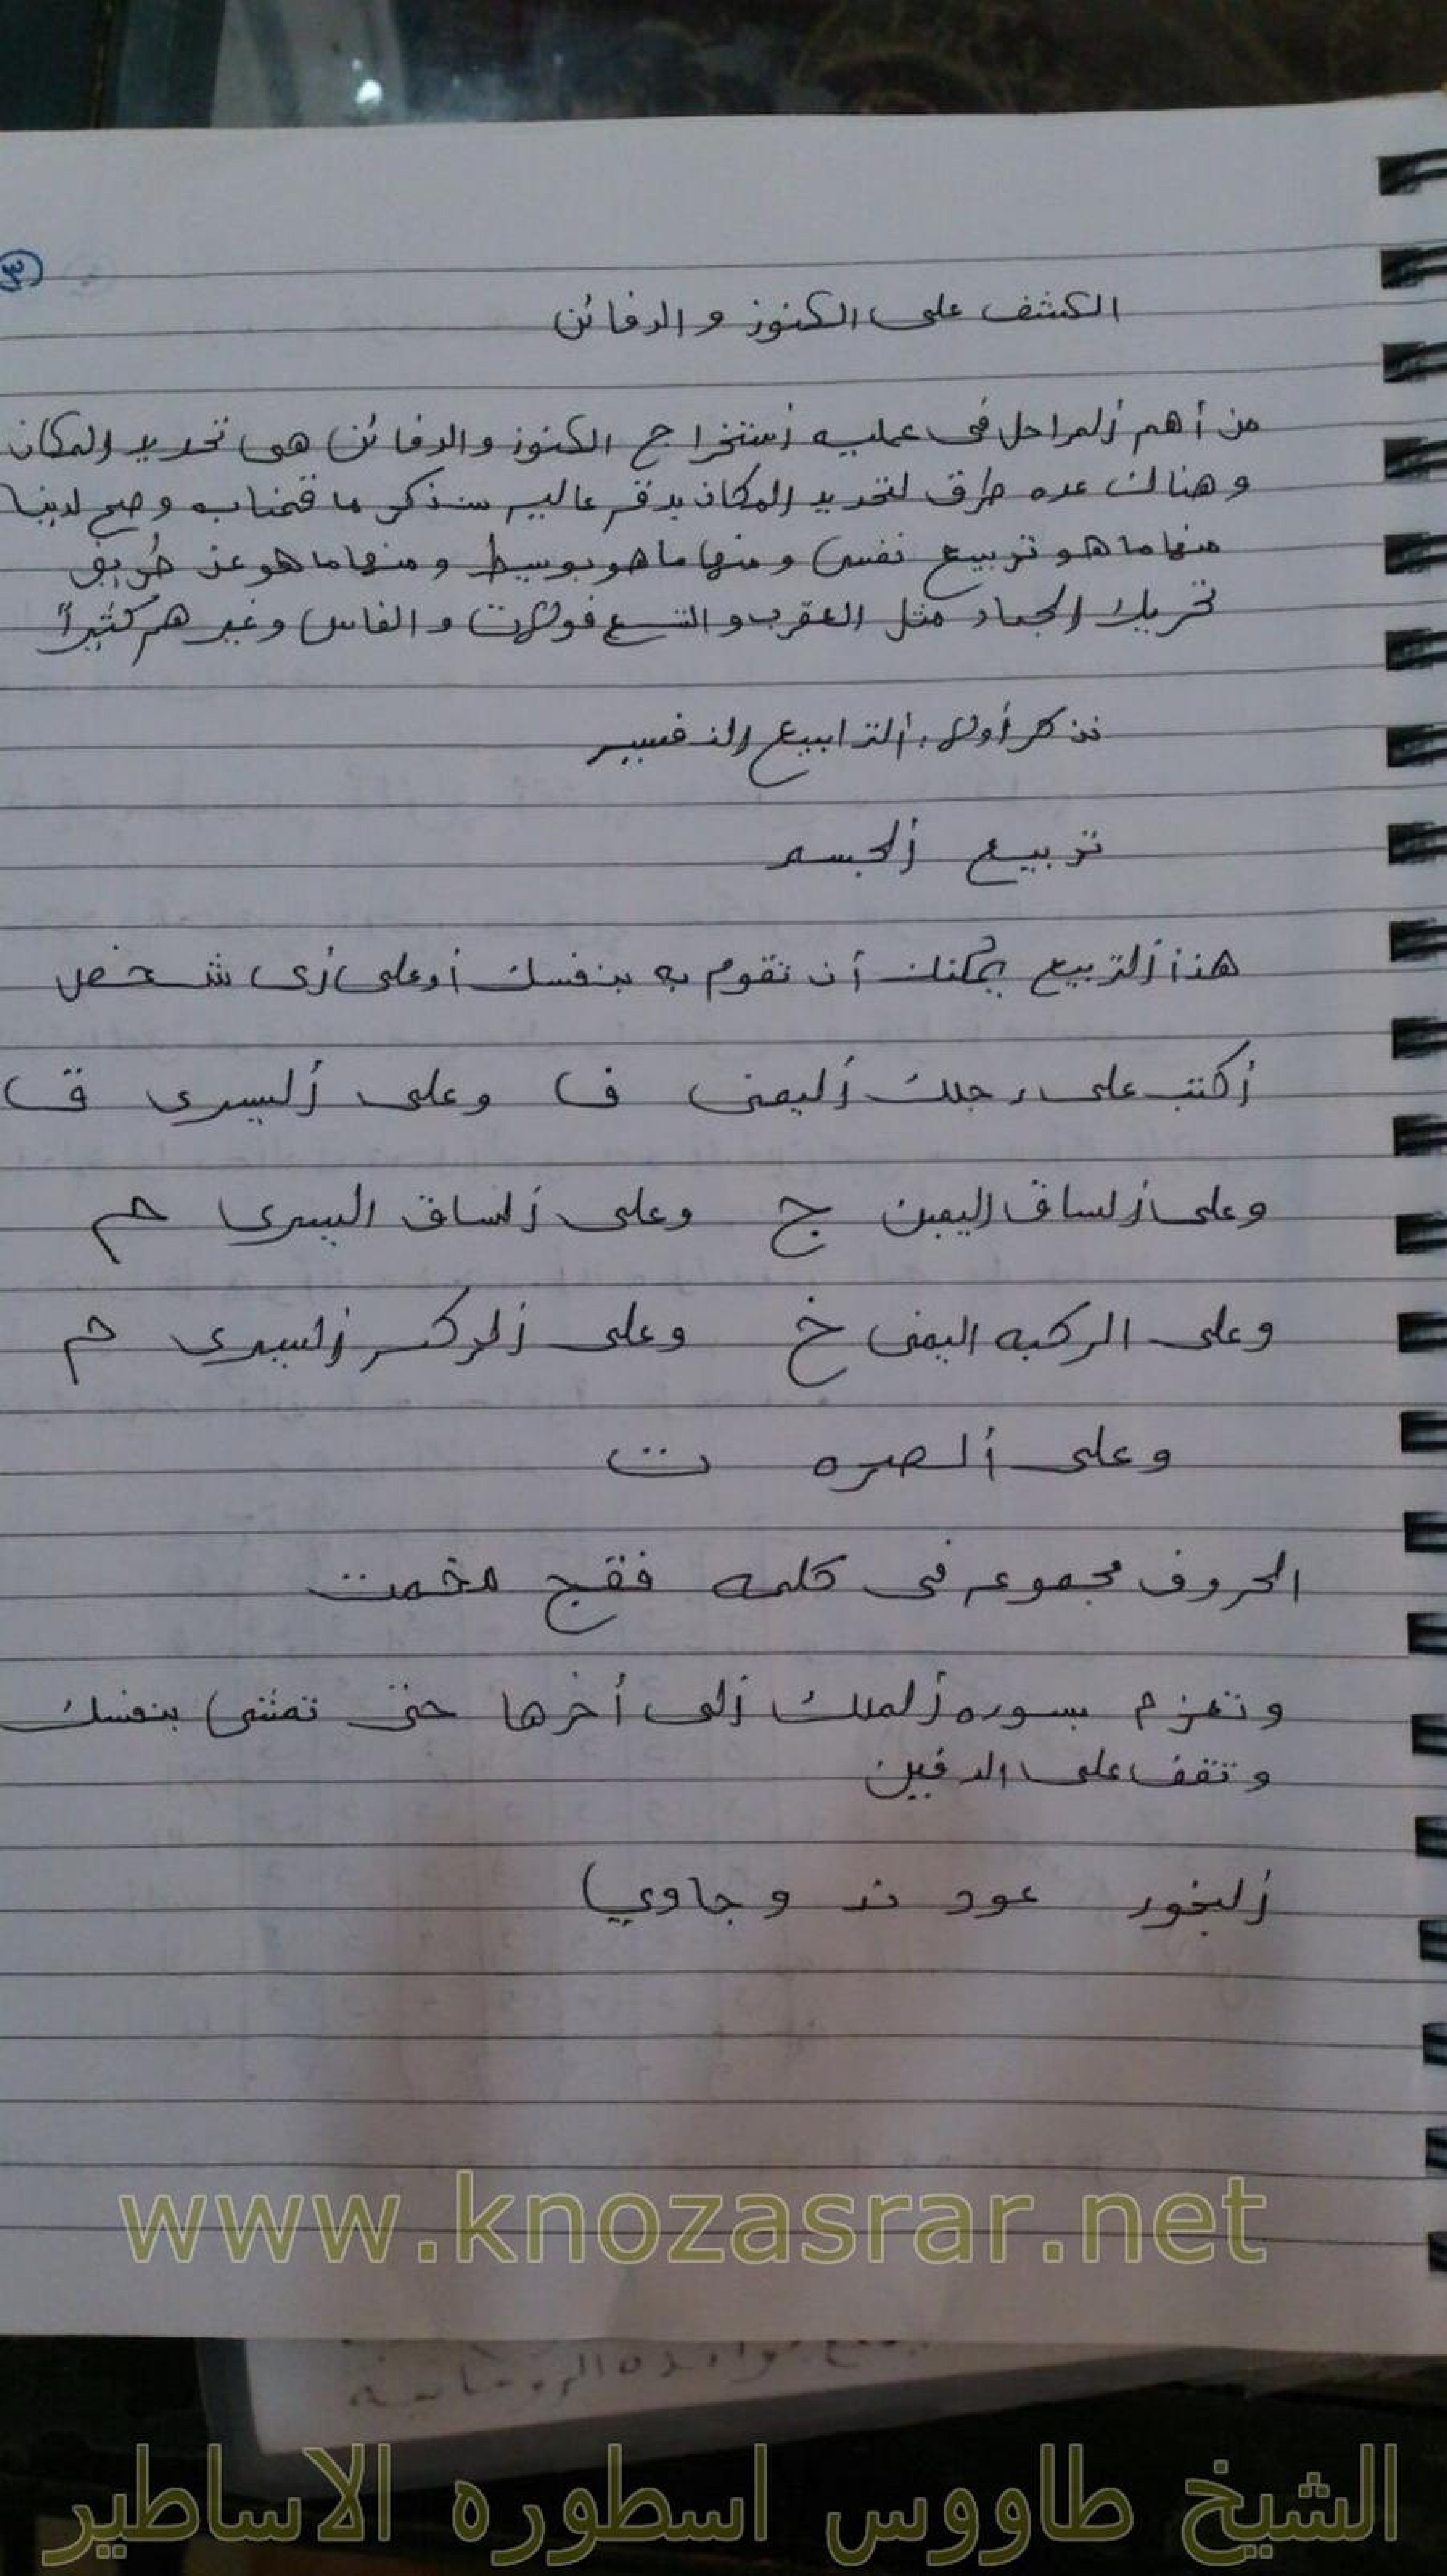 ٣
الكشف على الكنوز و الدفائن
من أهم المراحل فى عمليه إستخراج الكنوز والدفائن هى تحديد المكان
وهناك عده طرق لتحديد المكان بدقه عاليه سنذكر ما قمنا به وصح لدينا
منها ما هو تربيع نفسى ومنها ما هو بوسيط ومنها ما هو عن طريق
تحريك الجماد مثل العقرب والتسع فولات والفاس وغيرهم كثيراً
نذكر أولا: الترابيع النفسيه
تربيع الجسم
هذا التربيع يمكنك أن تقوم به بنفسك أو على أى شخص
أكتب على رجلك اليمنى ف وعلى اليسرى ق
وعلى الساق اليمين ج وعلى الساق اليسرى م
وعلى الركبه اليمنى خ وعلى الركبه اليسرى م
وعلى الصره ت
الحروف مجموعه فى كلمه فقج مخمت
وتعزم بسوره الملك إلى أخرها حتى تمشى بنفسك
وتقف على الدفين
البخور عود ند وجاوي
www.knozasrar.net
الشيخ طاووس اسطوره الاساطير